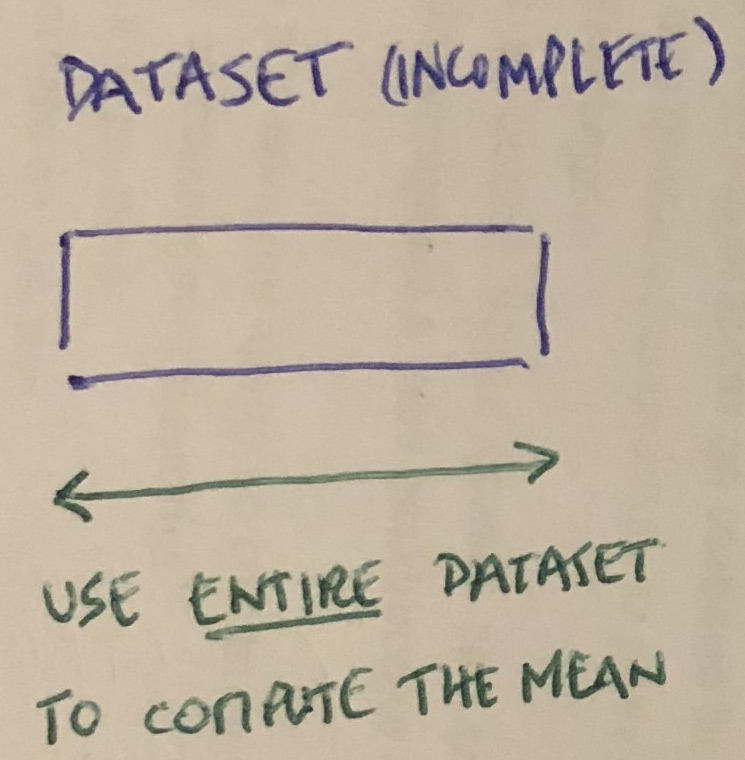 DATASET (INCOMPLETE)
USE ENTIRE DATASET
TO COMPUTE THE MEAN